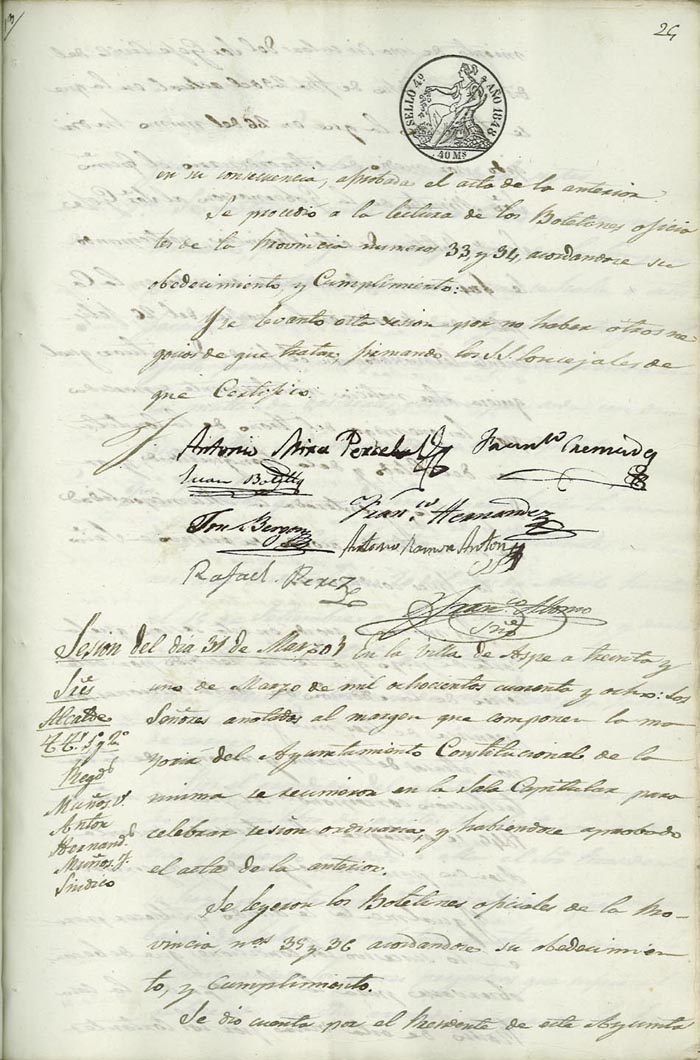 26
SELLO 4º AÑO 1848
40 Ms
en su consecuencia, aprobada el acta de la anterior.
Se procedió a la lectura de los Boletines oficia
les de la Provincia números 33, y 34, acordandose su
obedecimiento y Cumplimiento:
Y se levantó esta sesion por no haber otros ne
gocios de que tratar, firmando los SS. Concejales de
que Certifico:
Antonio Mira Perceval Fran.co Cremades
Juan
Franco Hernandez
Antonio Ramon Anton
Rafael Perez
Franco Alonso
Srio
Sesion del dia 31 de Marzo
En la Villa de Aspe a treinta y
Sres
uno de Marzo de mil ochocientos cuarenta y ocho: Los
Alcalde
Señores anotados al margen que componen la ma
yoria del Ayuntamiento Constitucional de la
Regds
misma se reunieron en la Sala Capitular para
Muñoz
celebrar sesion ordinaria, y habiendose aprobado
Anton
Hernands
el acta de la anterior.
Muñoz
Sindico
Se leyeron los Boletines oficiales de la Pro-
vincia nos 35 y 36 acordandose su obedecimien
to, y Cumplimiento.
Se dio cuenta por el Presidente de este Ayunta